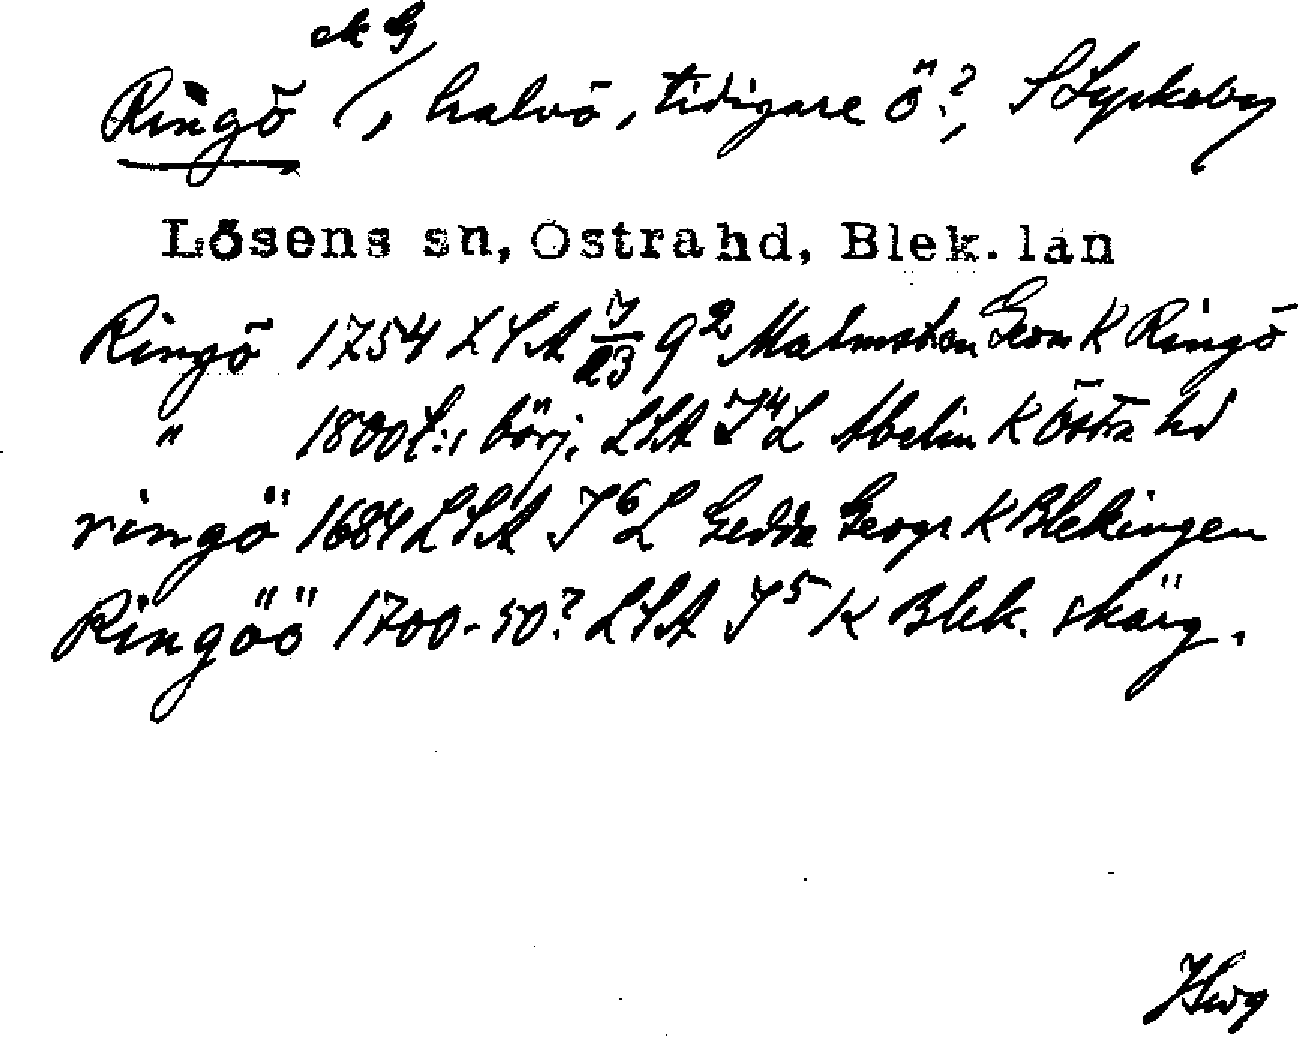 ek G
Ringö /, halvö, tidigare ö?, S Lyckeby
Lösens sn, Östra hd, Blek. län
Ringö 1754 LSA 7/23 9² Malmsten Geom K Ringö
" 1800t:s börj. LSA I⁴L Abelin K Östra hd
ringö 1684 LSA I⁶L Gedda Geogr K Blekingen
Ringöö 1700-50? LSA I⁵ K Blek. skärg.